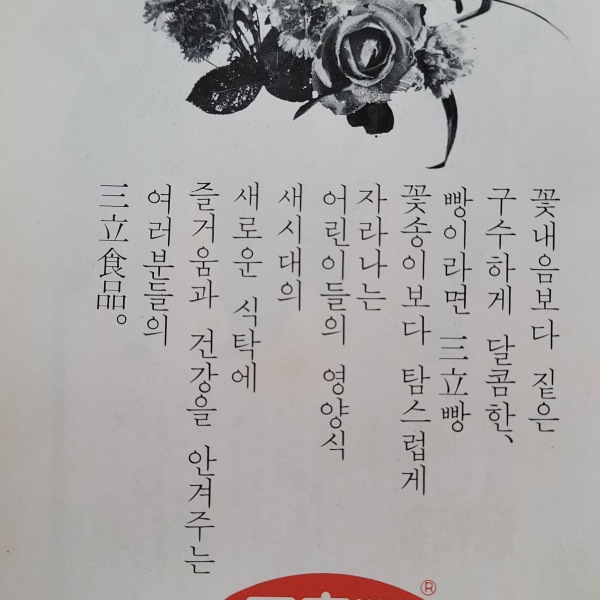 꽃내음보다 짙은
구수하게 달콤한、
빵이라면 三立빵
꽃송이보다 탐스럽게
자라나는
어린이들의 영양식
새시대의
새로운 식탁에
즐거움과 건강을 안겨주는
여러분들의
三立食品。
®